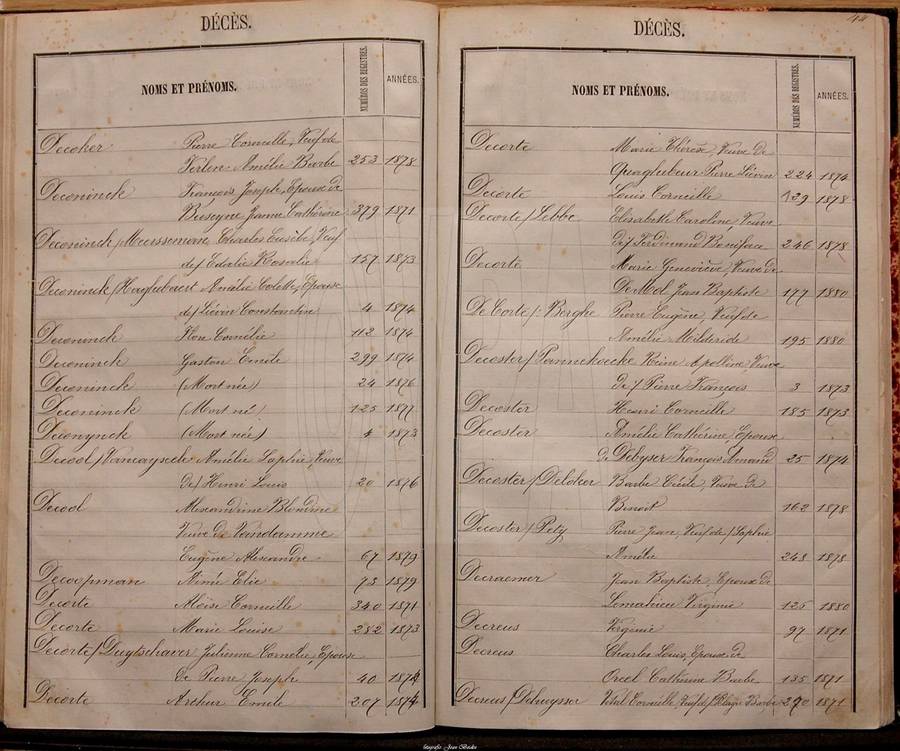 DÉCÈS.
NOMS ET PRÉNOMS. NUMÉROS DES REGISTRES. ANNÉES.
Decoker Pierre Corneille, Veuf de
Verlen Amélie Barbe 253 1878
Deconinck François Joseph, Epoux de
Jeanne Cathérine 379 1871
Deconinck/Meersseman, Charles Eusèbe, Veuf
de/ Eulalie Rosalie 157 1873
Deconinck/Haghebaert Amélie Colette, Epouse
de/ Liévin Constantin 4 1874
Deconinck Flore Cornélie 112 1874
Deconinck Gaston Emile 299 1874
Deconinck (Mort née) 24 1876
Deconinck (Mort né) 125 1877
Deconynck (Mort née) 4 1873
Decool/Vancayseele Amélie Sophie, Veuve
de/ Henri Louis 20 1876
Decool Alexandrine Blondine
Veuve de Vandamme
Eugène Alexandre 67 1879
Decoopman Aimé Elie 73 1879
Decorte Aloïse Corneille 340 1871
Decorte Marie Louise 282 1873
Decorte/Duytschaver Julienne Cornélie Epouse
de Pierre Joseph 40 1874
Decorte Arthur Emile 207 1874
44
DÉCÈS.
NOMS ET PRÉNOMS. NUMÉROS DES REGISTRES. ANNÉES.
Decorte Marie Thérèse, Veuve de
Quaghebeur Pierre Liévin 224 1874
Decorte Louis Corneille 139 1878
Decorte/Lebbe Elisabeth Caroline, Veuve
de/ Ferdinand Boniface 246 1878
Decorte Marie Geneviève, Veuve de
De Mol Jean Baptiste 177 1880
De Corte/: Berghe Pierre Eugène, Veuf de
Amélie 195 1880
Decoster/Pannekoecke Reine Apolline, Veuve
de/ Pierre François 3 1873
Decoster Henri Corneille 185 1873
Decoster Amélie Cathérine, Epouse
de Debyser François Amand 25 1874
Decoster/Deloker Barbe Cécile, Veuve de
Benoit 162 1878
Decoster/Petz Pierre Jean, Veuf de/ Sophie
Amélie 248 1878
Decraemer Jean Baptiste, Epoux de
Lemahieu Virginie 125 1880
Decreus Virginie 97 1871
Decreus Charles Louis, Epoux de
Orcel Catherine Barbe 135 1871
Decreus/Dehuysser Vital Corneille, Veuf de/ Pélagie Barbe 270 1871